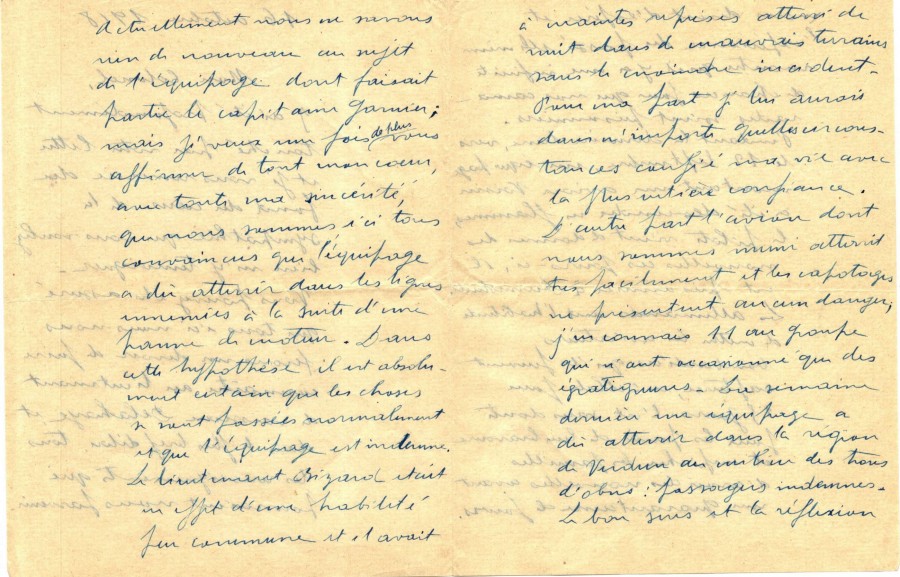 Actuellement nous ne savons
rien de nouveau au sujet
de l'équipage dont faisait
partie le capitaine Garnier ;
mais je veux une fois de plus vous
affirmer de tout mon coeur,
avec toute ma sincérité,
que nous sommes ici tous
convaincus que l'équipage
a dû atterrir dans les lignes
ennemies à la suite d'une
panne de moteur. Dans
cette hypothèse il est absolu-
ment certain que les choses
se sont passées normalement
et que l'équipage est indemne.
Le lieutenant Bizard était
en effet d'une habilité
peu commune et il avait
à maintes reprises atterri de
nuit dans de mauvais terrains
sans le moindre incident.
Pour ma part je lui aurais
dans n'importe quelles circons-
tances confié ma vie avec
la plus entière confiance.
D'autre part l'avion dont
nous sommes muni atterrit
très facilement et les capotages
ne présentent aucun danger ;
j'en connais 11 au groupe
qui n'ont occasionné que des
égratignures. La semaine
dernière un équipage a
dû atterrir dans la région
de Verdun au milieu des trous
d'obus : passagers indemnes.
Le bon sens et la réflexion